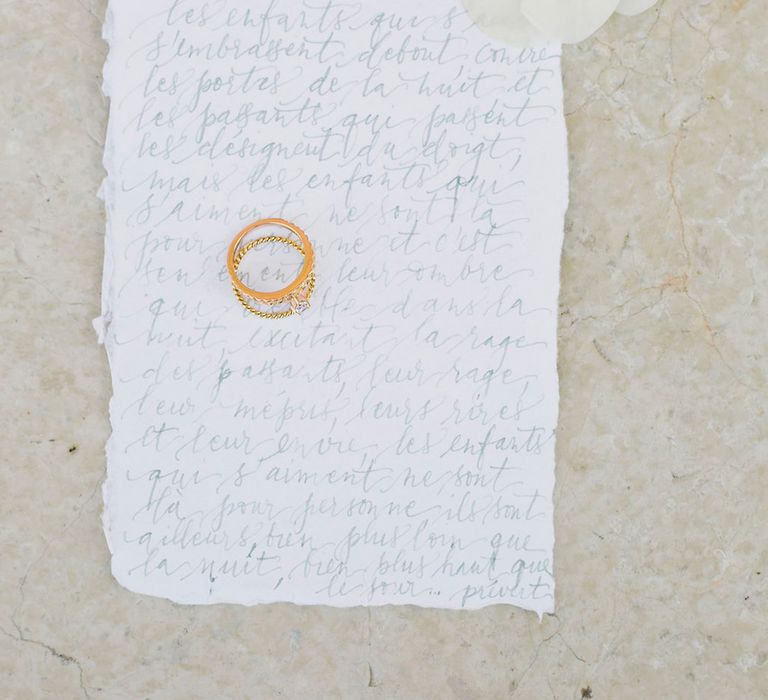 les enfants qui s'a
s'embrassent debout contre
les portes de la nuit et
les passants qui passent
les désignent du doigt,
mais les enfants qui
s'aiment ne sont là
pour personne et c'est
seulement leur ombre
qui dans la
nuit, excitant la rage
des passants, leur rage,
leur mépris, leurs rires
et leur envie, les enfants
qui s'aiment ne sont
là pour personne ils sont
ailleurs, bien plus loin que
la nuit, bien plus haut que
le jour... prévert